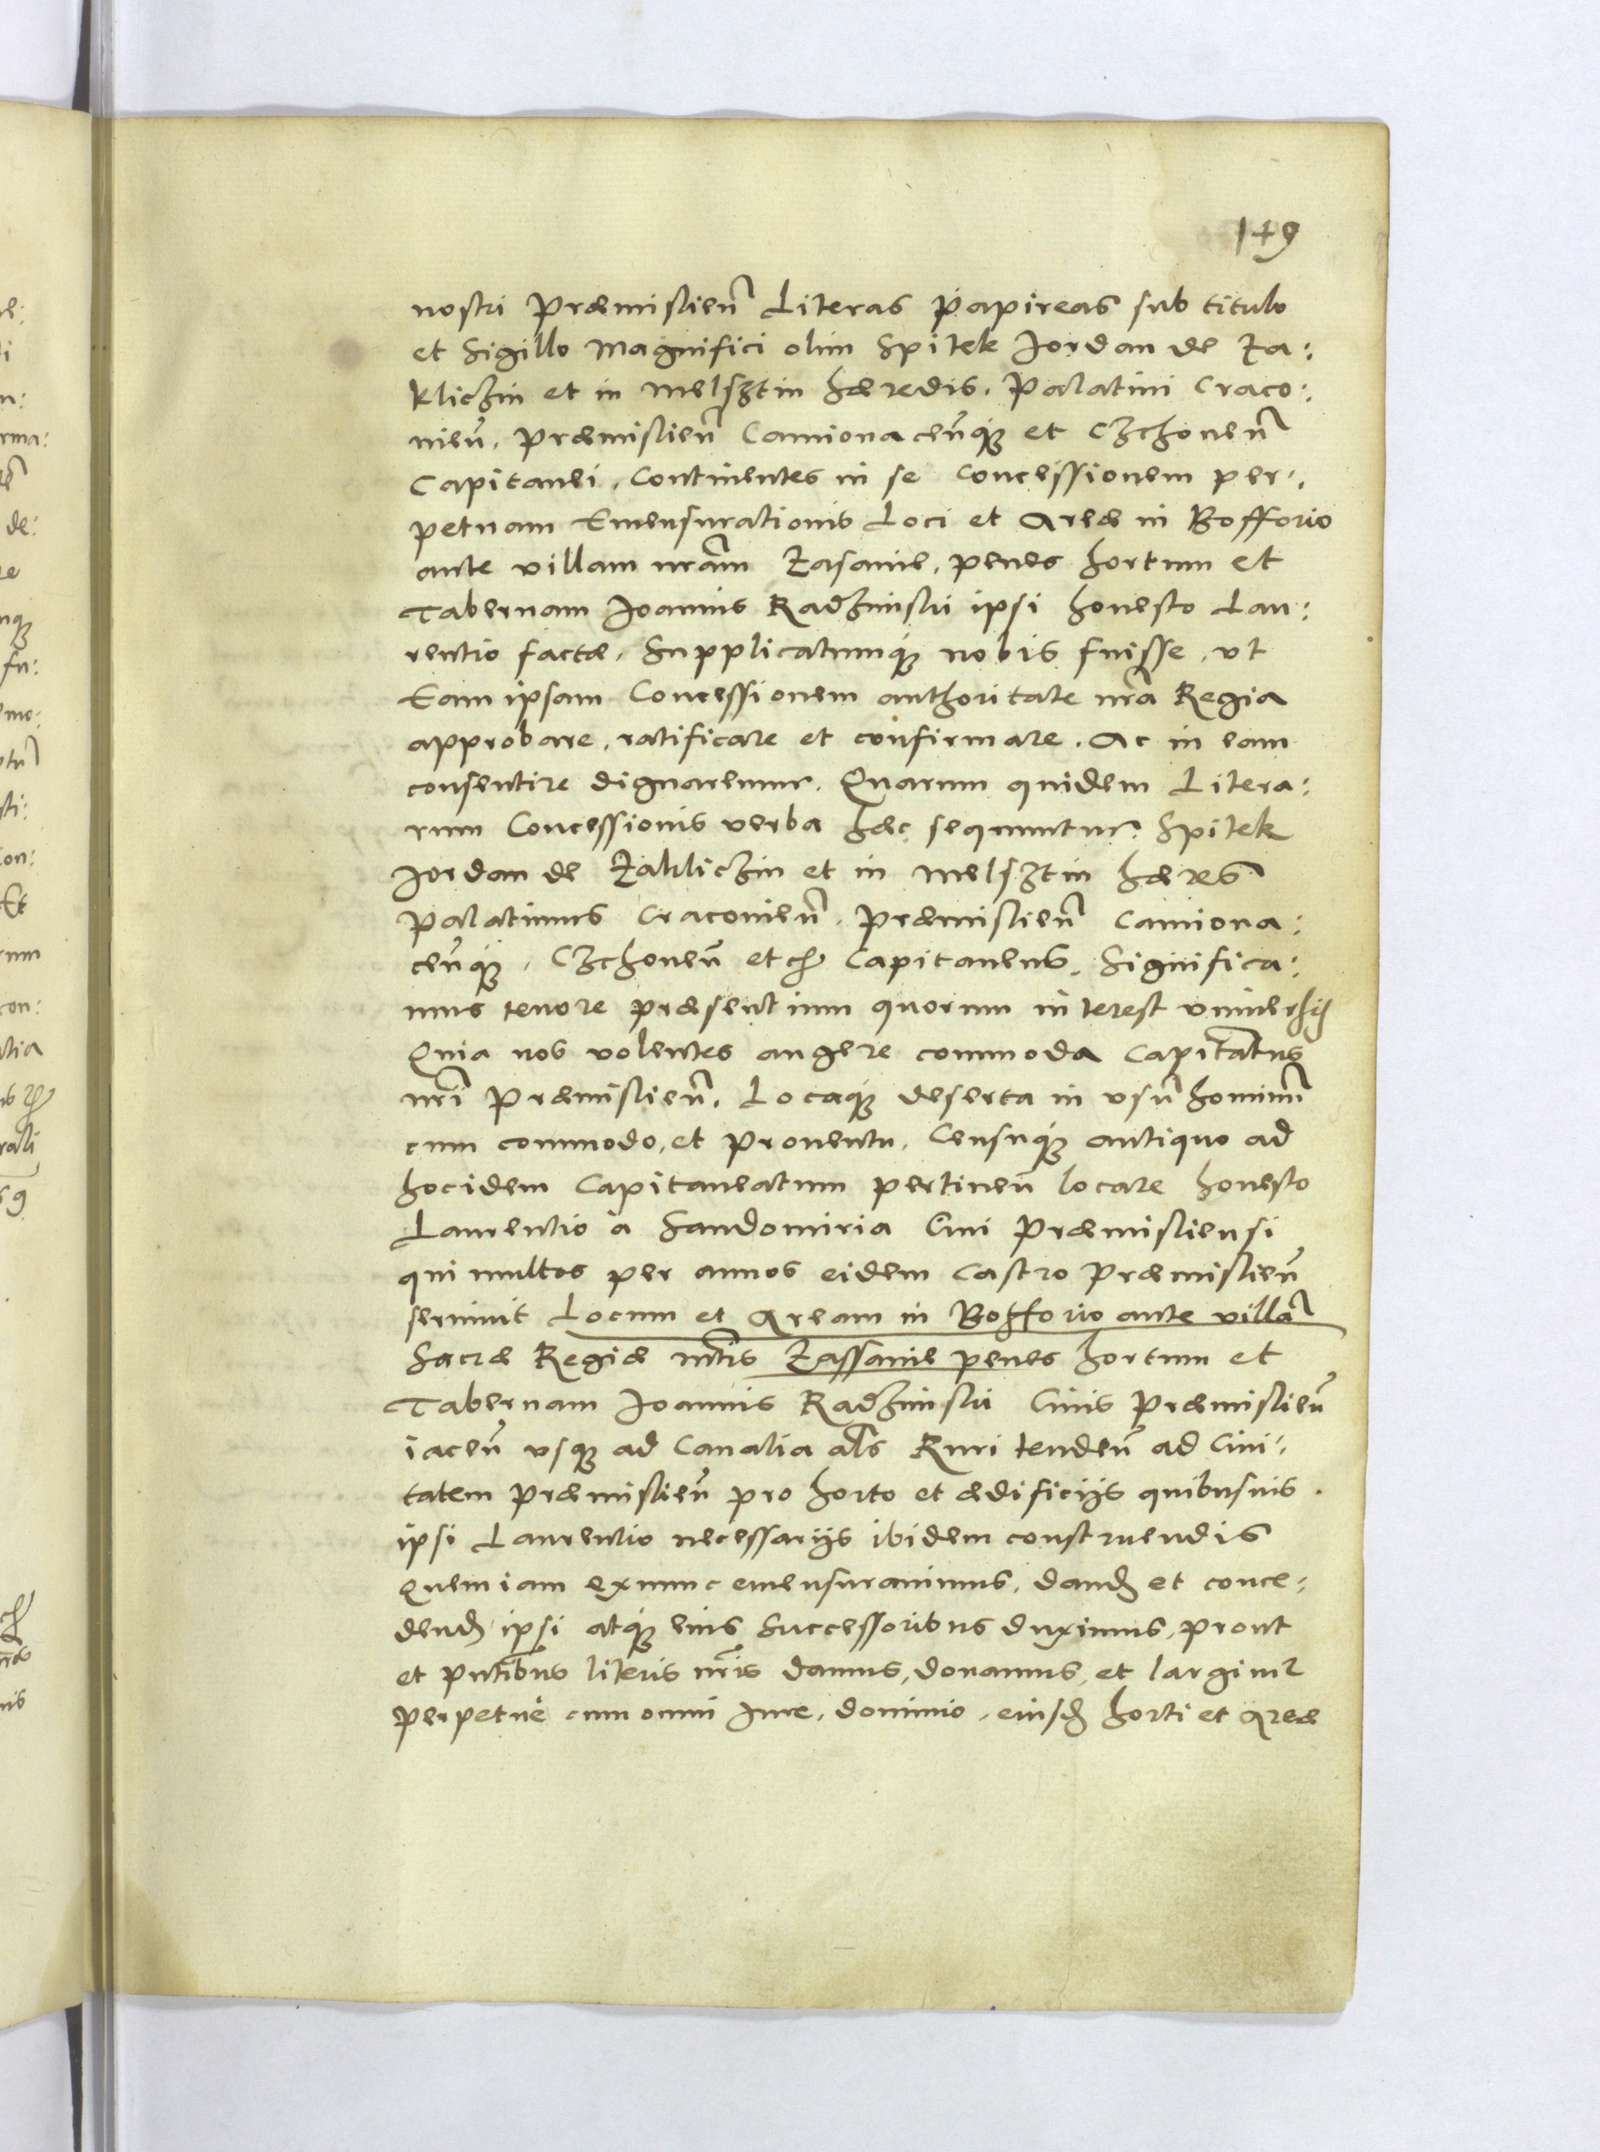 149
nostri Præmislien̄ Literas papireas sub titulo
et Sigillo Magnifici olim Spitek Jordan de Za:
kliczin et in Melsztin hæredis. Palatini Craco:
nien̄. Præmislien̄ Camionacen̄q; et Czchonen̄
Capitanei. Continentes in se Concessionem per:
petuam Emensurationis Loci et Areæ in Bofforio
ante villam nr̄am Zasanie, penes hortum et
Tabernam Joannis Radzinski ipsi honesto Lau:
rentio factæ. Supplicatumq; nobis fuisse, vt
Eam ipsam Concessionem authoritate nr̄a Regia
approbare, ratificare et confirmare. Ac in eam
consentire dignaremur. Quarum quidem Litera:
rum Concessionis verba hæc sequuntur. Spitek
Jordan de Zakliczin et in Melsztin hæres
Palatinus Cracouien̄. Præmislien̄ Camiona:
cen̄q; Czchonen̄ etc Capitaneus. Significa:
mus tenore præsentium quorum interest vniuersis
Quia nos volentes augere commoda Capitātus
nr̄i Præmislien̄. Locaq; deserta in vsū hominū
cum commodo, et prouentu, Censuq; antiquo ad
hocidem Capitaneatum pertinen̄ locare honesto
Laurentio a Sandomiria Ciui Præmisliensi
qui multos per annos eidem Castro Præmislien̄
seruiuit Locum et Aream in Bofforio ante villā
Sacræ Regiæ mt̄is Zassanie penes hortum et
Tabernam Joannis Radzinski Ciuis Præmislien̄
iacen̄ vsq; ad Canalia al̄s Ruri tenden̄ ad Ciui:
tatem Præmislien̄ pro horto et ædificijs quibusuis
ipsi Laurentio necessarijs ibidem construendis
Quem iam exnunc emensurauimus, dand et conce:
dend ipsi atq; eius Successoribus duximus, prout
et pn̄tibus literis nr̄is damus, donamus, et largimr
perpetuè cum omni Jure, dominio, eiusd horti et Areæ